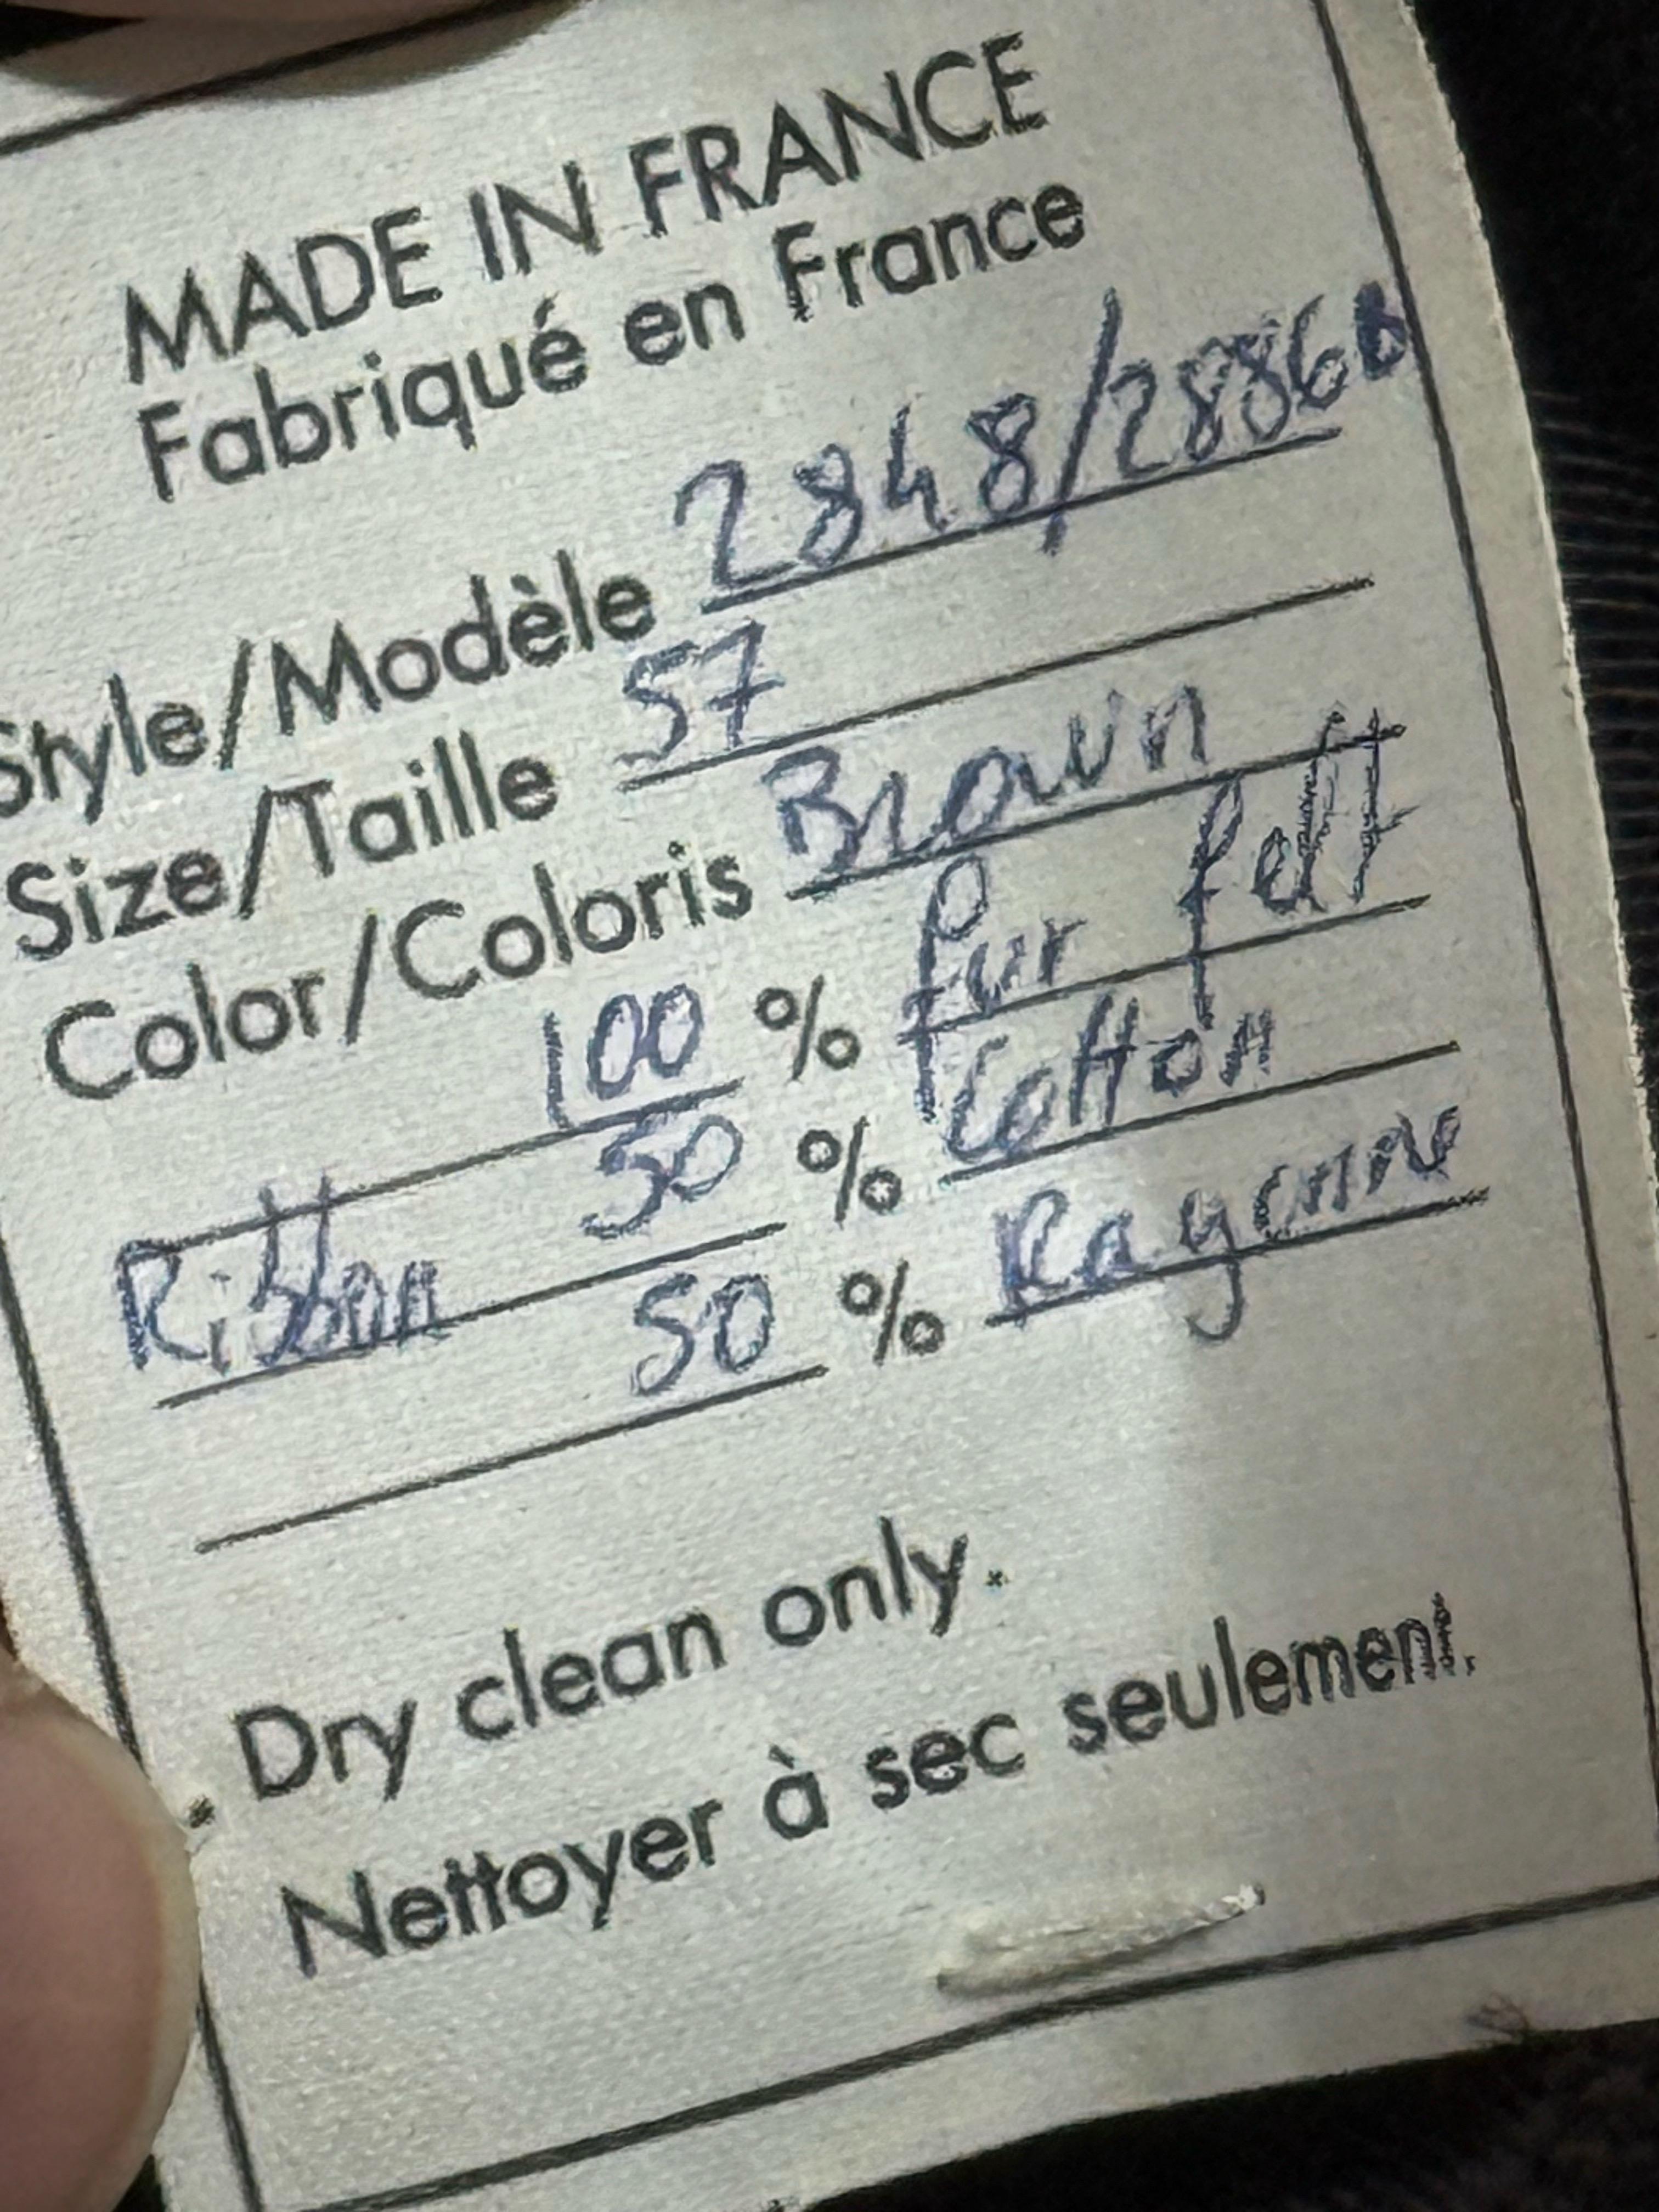 MADE IN FRANCE
Fabriqué en France
Style/Modèle 2848/2886B
Size/Taille 57
Color/Coloris Brown
100 % fur felt
Ribbon 50 % Cotton
50 %
Dry clean only.
Nettoyer à sec seulement.